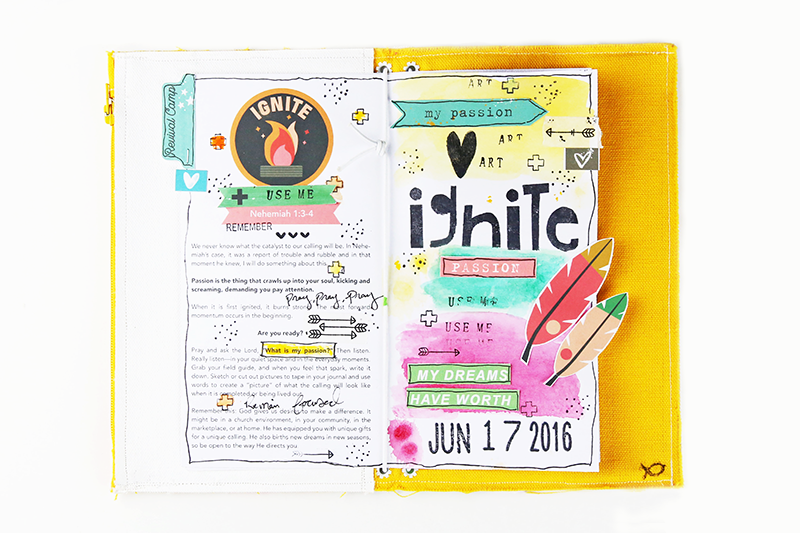 Revival Camp
IGNITE
USE ME
Nehemiah 1:3-4
REMEMBER
We never know what the catalyst to our calling will be. In Nehe-
miah's case, it was a report of trouble and rubble and in that
moment he knew, I will do something about this.
Passion is the thing that crawls up into your soul, kicking and
screaming, demanding you pay attention.
pray, pray, pray
When it is first ignited, it burns strong. The most forward
momentum occurs in the beginning.
Are you ready?
Pray and ask the Lord, What is my passion? Then listen.
Really listen—in your quiet space and in the everyday moments.
Grab your field guide, and when you feel that spark, write it
down. Sketch or cut out pictures to tape in your journal and use
words to create a "picture" of what the calling will look like
when it is completed or being lived out.
remain focused
Remember this: God gives us desires to make a difference. It
might be in a church environment, in your community, in the
marketplace, or at home. He has equipped you with unique gifts
for a unique calling. He also births new dreams in new seasons,
so be open to the way He directs you.
ART
my passion
ART
ART
ignite
PASSION
USE ME
USE ME
USE ME
MY DREAMS
HAVE WORTH
JUN 17 2016